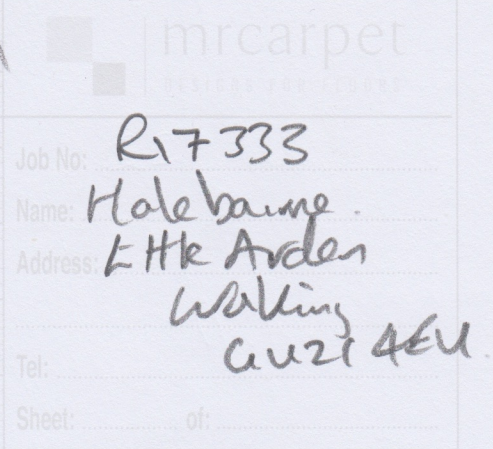 mrcarpet
DESIGNS FOR FLOORS
Job No: R17333
Name: Halebourne.
Address: Little Arden
Woking
GU21 4EU.
Tel:
Sheet: of: